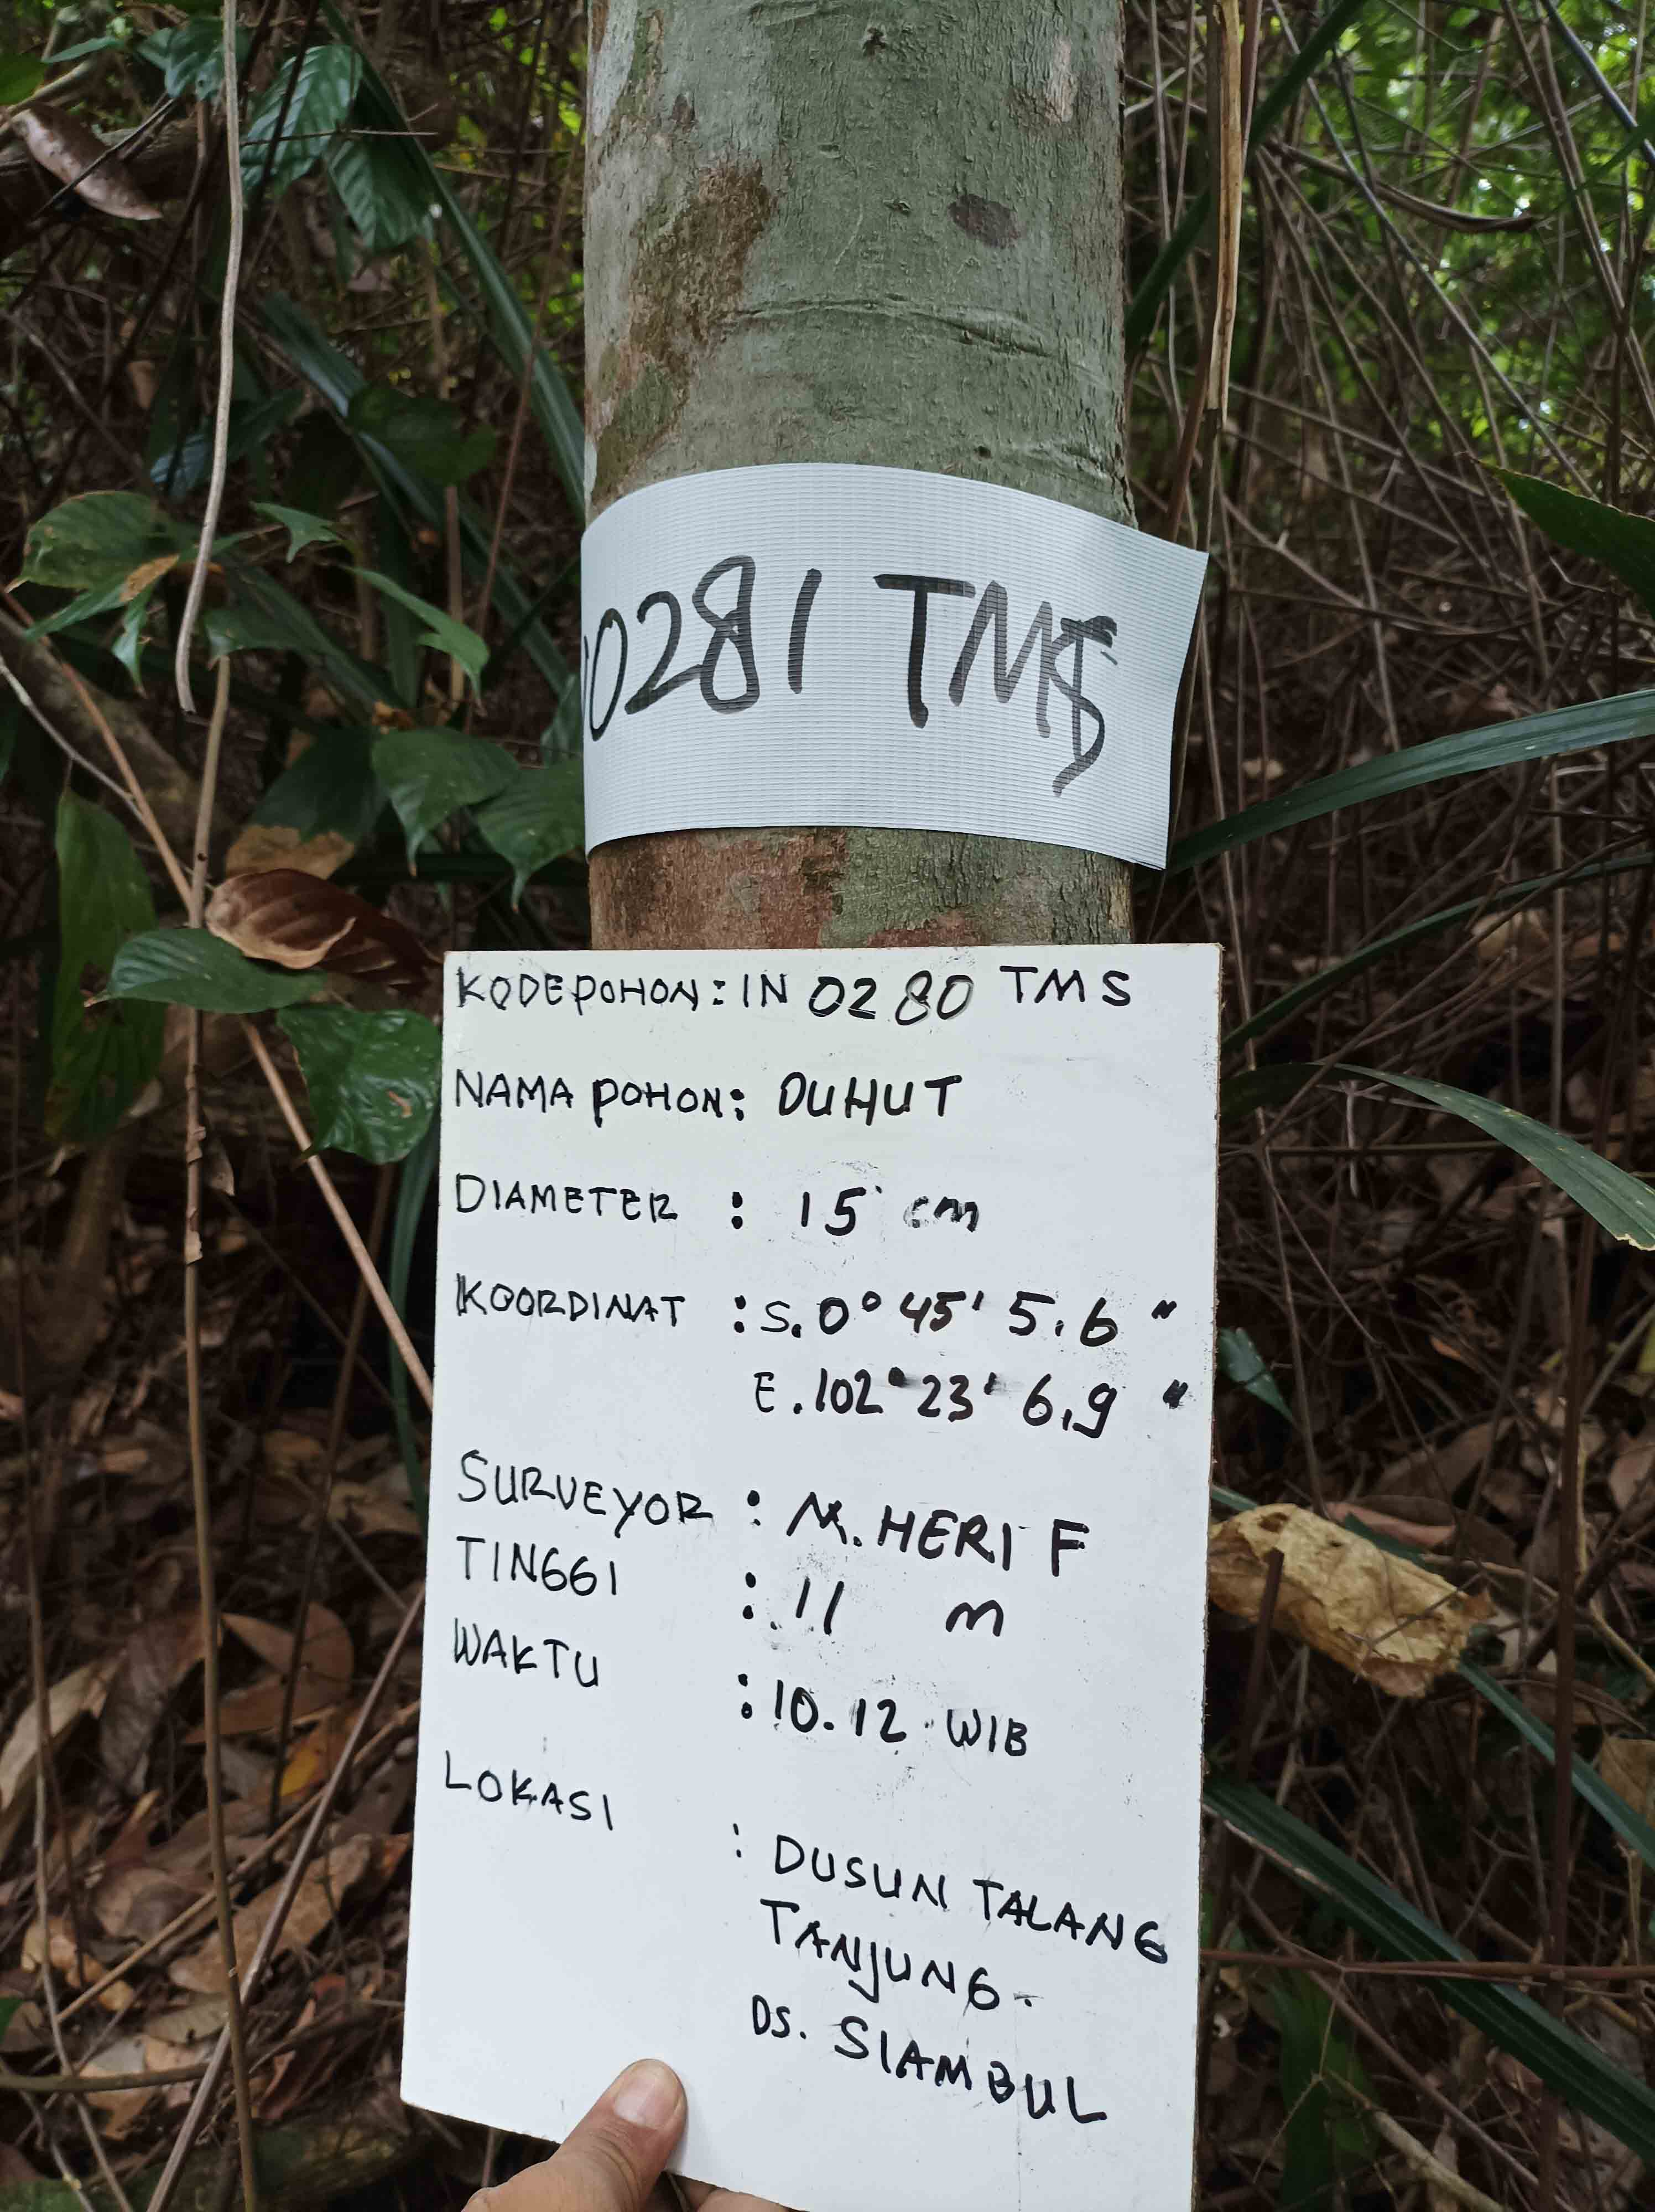 0281 TMS
KODE POHON : IN 0280 TMS
NAMA POHON : DUHUT
DIAMETER : 15 cm
KOORDINAT : S. 0° 45' 5.6 "
E. 102° 23' 6,9 "
SURVEYOR : M. HERI F
TINGGI : 11 m
WAKTU : 10.12 WIB
LOKASI : DUSUN TALANG
TANJUNG.
DS. SIAMBUL